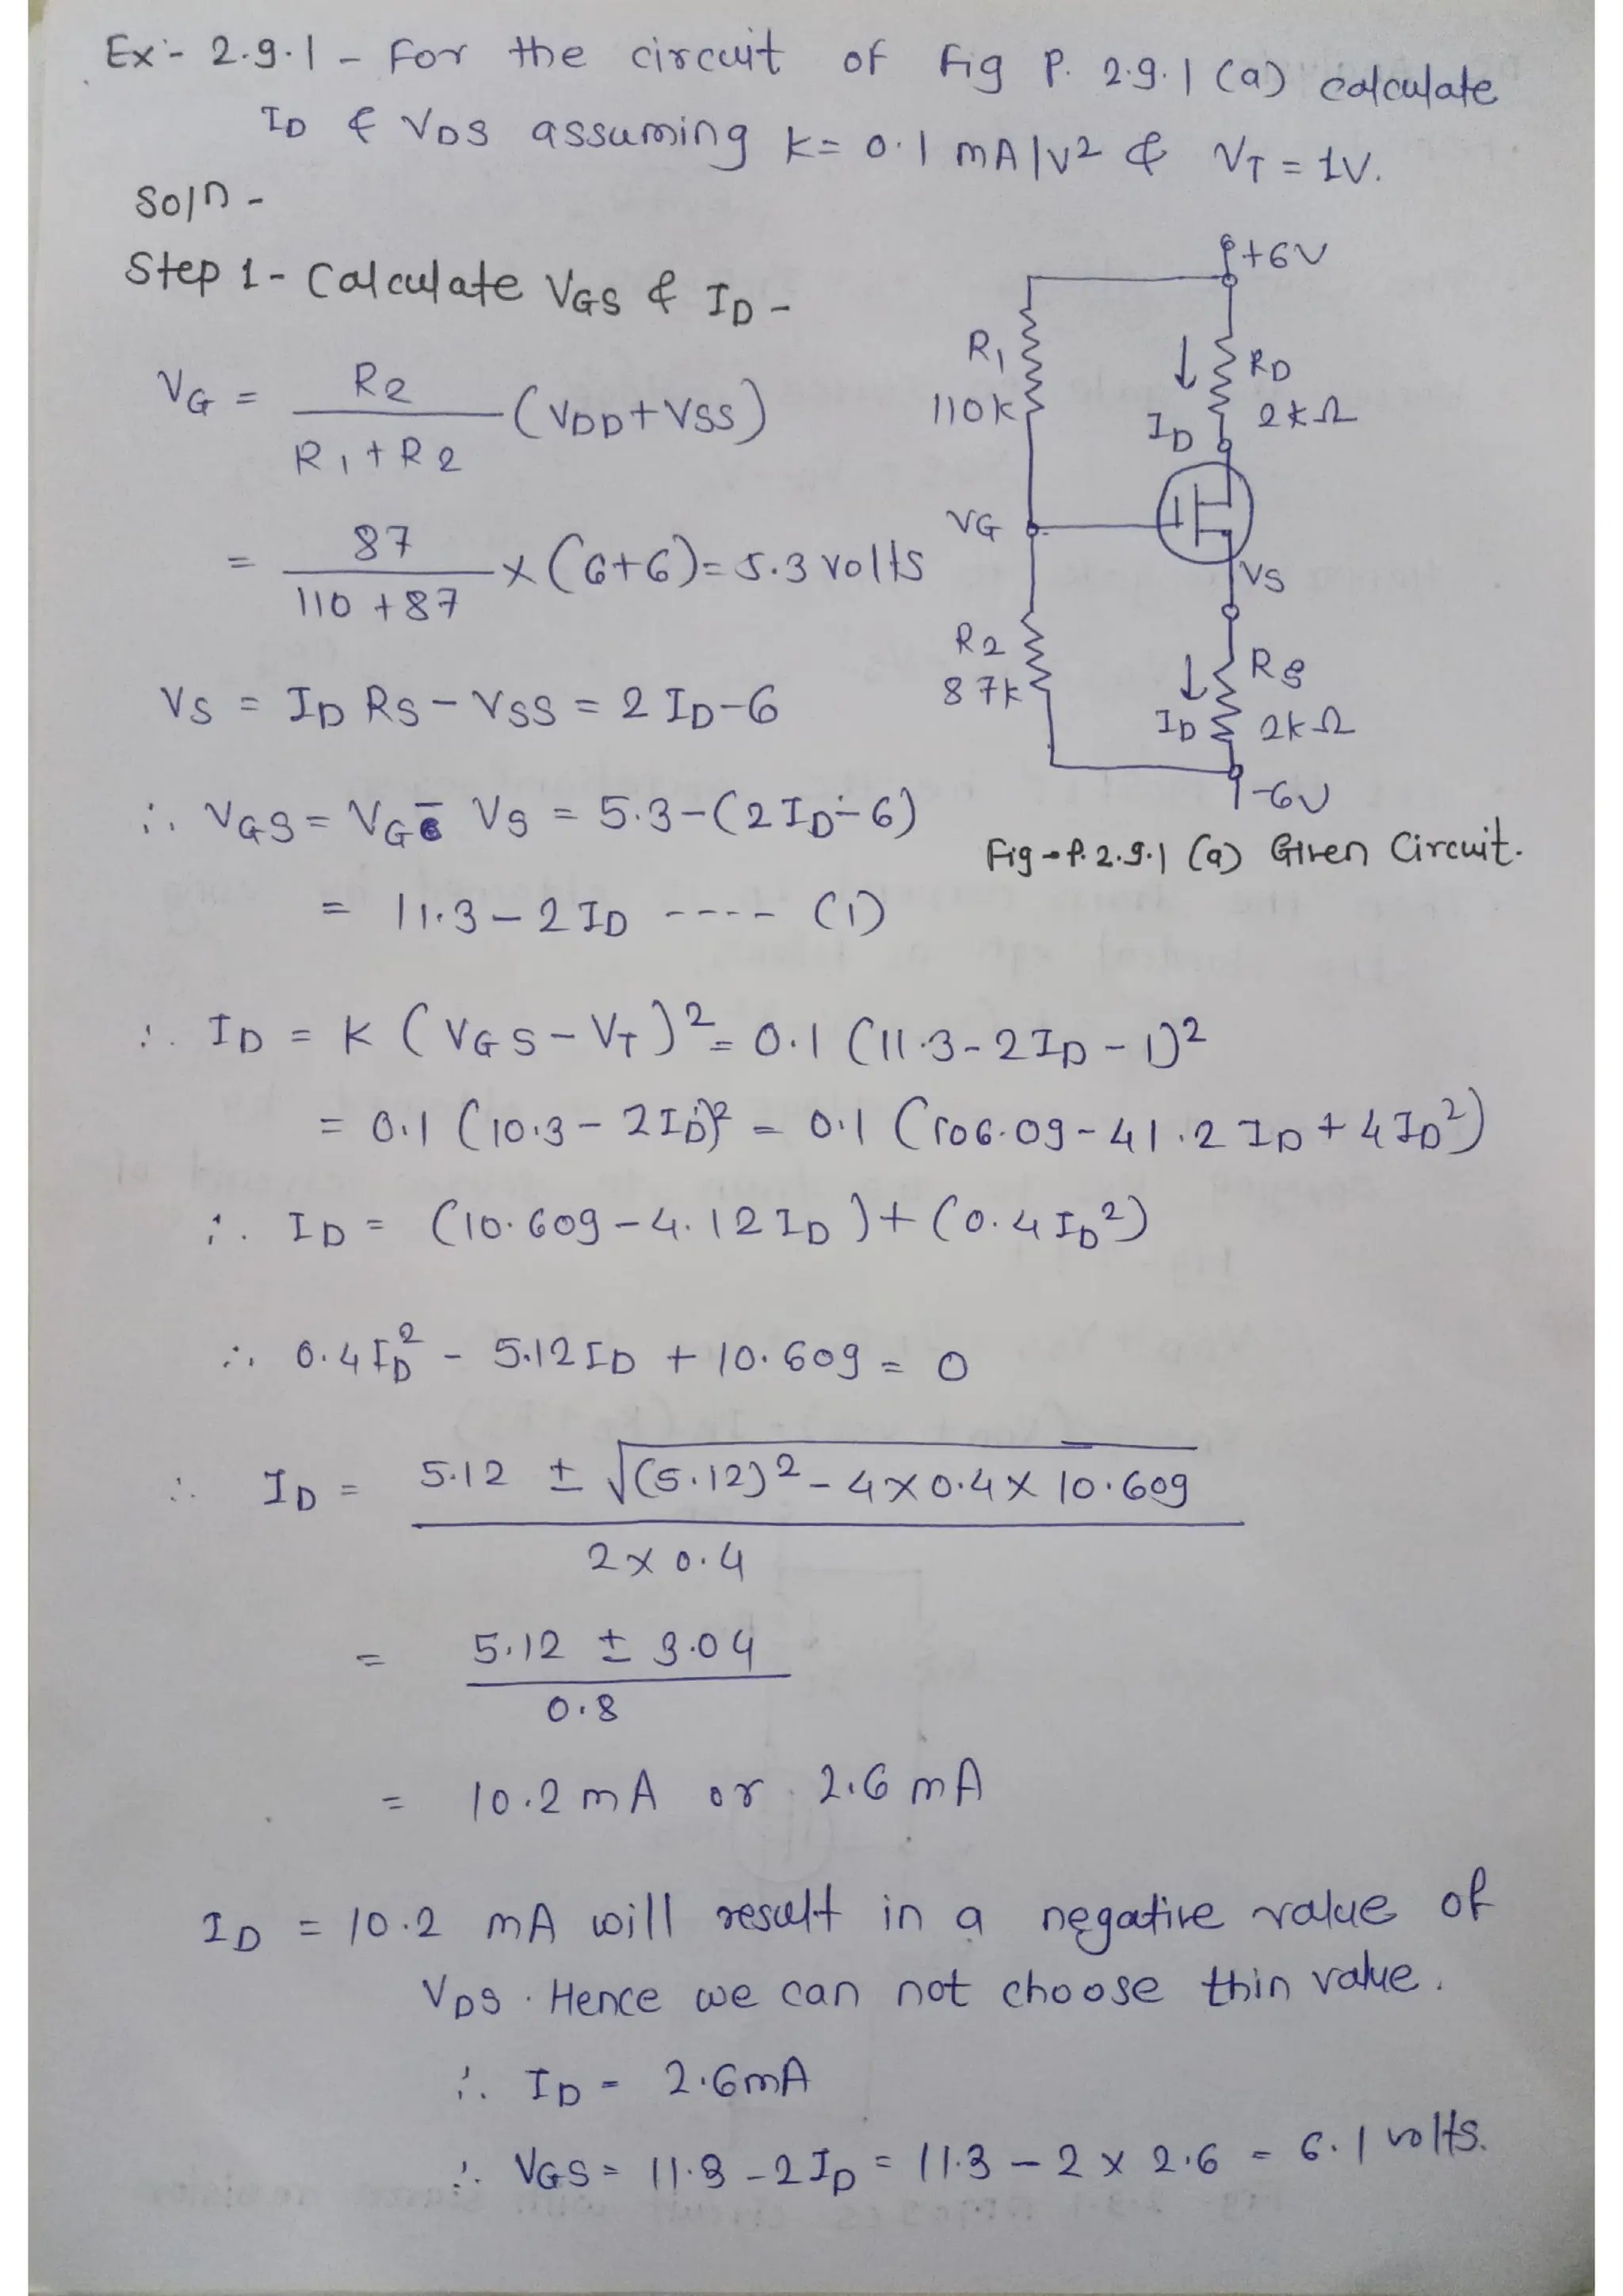 Ex:- 2.9.1 - For the circuit of Fig P. 2.9.1 (a) calculate
ID & VDS assuming K= 0.1 mA/V2 & VT = 1V.
Soln -
Step 1 - Calculate VGS & ID -
+6V
R1
110K
ID
RD
2kΩ
VG = R2 / R1 + R2 (VDD+VSS)
= 87 / 110 + 87 × (6+6) = 5.3 volts
VG
VS
R2
87k
ID
RS
2kΩ
-6V
Fig - P. 2.9.1 (a) Given Circuit.
VS = ID RS - VSS = 2 ID-6
∴ VGS = VG - VS = 5.3-(2ID-6)
= 11.3 - 2ID ---- (1)
∴ ID = K (VGS - VT)2 = 0.1 (11.3-2ID - 1)2
= 0.1 (10.3 - 2ID)2 = 0.1 (106.09-41.2 ID + 4ID2)
∴ ID = (10.609 - 4.12 ID) + (0.4 ID2)
∴ 0.4 ID2 - 5.12 ID + 10.609 = 0
∴ ID = 5.12 ± √(5.12)2 - 4×0.4× 10.609 / 2×0.4
= 5.12 ± 3.04 / 0.8
= 10.2 mA or 2.6 mA
ID = 10.2 mA will result in a negative value of
VDS. Hence we can not choose thin value.
∴ ID = 2.6mA
∴ VGS = 11.3 - 2ID = 11.3 - 2 × 2.6 = 6.1 volts.